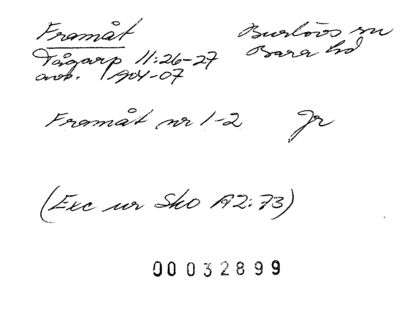 Framåt
Burlövs sn
Tågarp 11:26-27
Bara hd
avs. 1904-07
Framåt nr 1-2 Jr
(Exc ur Sko A2:73)
00032899